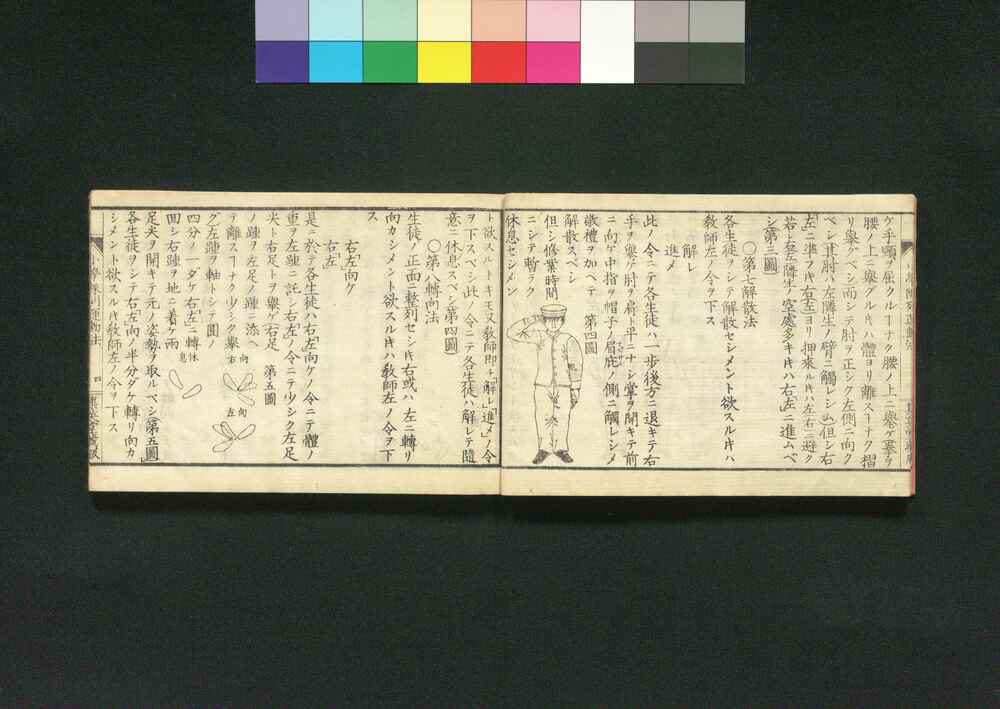 ケ手頸ヲ屈クルヿナク腰ノ上ニ擧ケ拳ヲ
腰ノ上ニ擧グルキハ體ヨリ離スヿナク摺
リ擧グベシ而シテ肘ヲ正シク左側ニ向ク
ベシ其肘ハ左隣生ノ臂ニ觸レシム但シ右
左ニ準ノキ右左ヨリ押來ルキハ左右ニ避ク
若シ右左隣生ノ空處多キキハ右左ニ進ムベ
シ第三圖
○第七解散法
各生徒ヲシテ解散セシメント欲スルキハ
教師左ノ令ヲ下ス
解レ
進メ
此ノ令ニテ各生徒ハ一歩後方ニ退キテ右
手ヲ擧ケ肘ヲ肩ト平ニナシ掌ヲ開キテ前
ニ向ケ中指ヲ帽子ノ眉庇ノ側ニ觸レシメ
敬禮ヲ加ヘテ
第四圖
解散スベシ
但シ修業時間
ニシテ暫ラク
休息セシメン
ト欲スルトキモ又教師即チ解レ進メノ令
ヲ下スベシ此ノ令ニテ各生徒ハ解レテ隨
意ニ休息スベシ第四圖
○第八轉向法
生徒ノ正面ニ整列セシキ右或ハ左ニ轉リ
向カシメント欲スルキハ教師左ノ令ヲ下
ス
右左向ケ
右左
是ニ於テ各生徒ハ右左向ケノ令ニテ體ノ
重ヲ左踵ニ託シ右左ノ令ニテ少シク左足
尖ト右足トヲ擧ゲ右足
第五圖
ノ踵ヲ左足ノ踵ニ添ヘ
テ離スヿナク少シク擧
グ左踵ヲ軸トシテ圓ノ
四分ノ一ダケ右左ニ轉
回シ右踵ヲ地ニ着ケ兩
右向
左向
休息
足尖ヲ開キテ元ノ姿勢ヲ取ルベシ第五圖
各生徒ヲシテ右左向ノ半分ダケ轉リ向カ
シメント欲スルキ教師左ノ令ヲ下ス
四